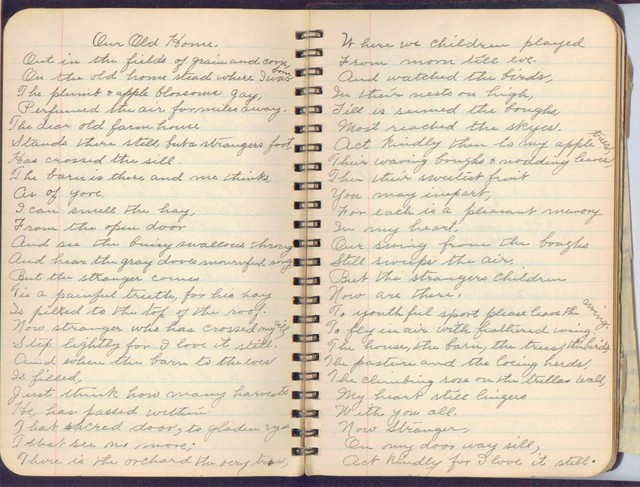 Our Old Home.
Out in the fields of grain and corn,
On the old home stead where I was born
The plumb & apple blossoms gay,
Perfumed the air for miles away.
The dear old farm house
Stands there still but a strangers foot
Has crossed the sill
The barn is there and me thinks
As of yore
I can smell the hay,
From the open door
And see the busy swallows throng
And hear the gray doves mournful song
But the stranger comes
Tis a painful truth, for his hay
Is filled to the top of the roof.
Now stranger who has crossed my sill
Step lightly for I love it still.
And when the barn to the eves
Is filled,
Just think how many harvests
He, has passed within
That sacred door, to gladen eyes
That see no more;
There is the orchard the very trees,
Where we children played
From morn till eve.
And watched the birds,
In their nests on high,
Till is semed the boughs
Most reached the skyes.
Act kindly then to my apple trees,
Their waving boughs & nodding leaves,
Then their sweetist fruit
You may impart,
For each is a pleasant memory
In my heart,
Our swing from the boughs
Still sweeps the air,
But the strangers children
Now are there.
To youthful sport please leave the swing.
To fly in air with haltered wing
The house, the barn, the trees, the birds
The pasture and the lowing herds,
The climbing rose on the trellas wall
My heart still lingers
With you all.
Now Stranger,
On my door way sill,
Act kindly for I love it still.